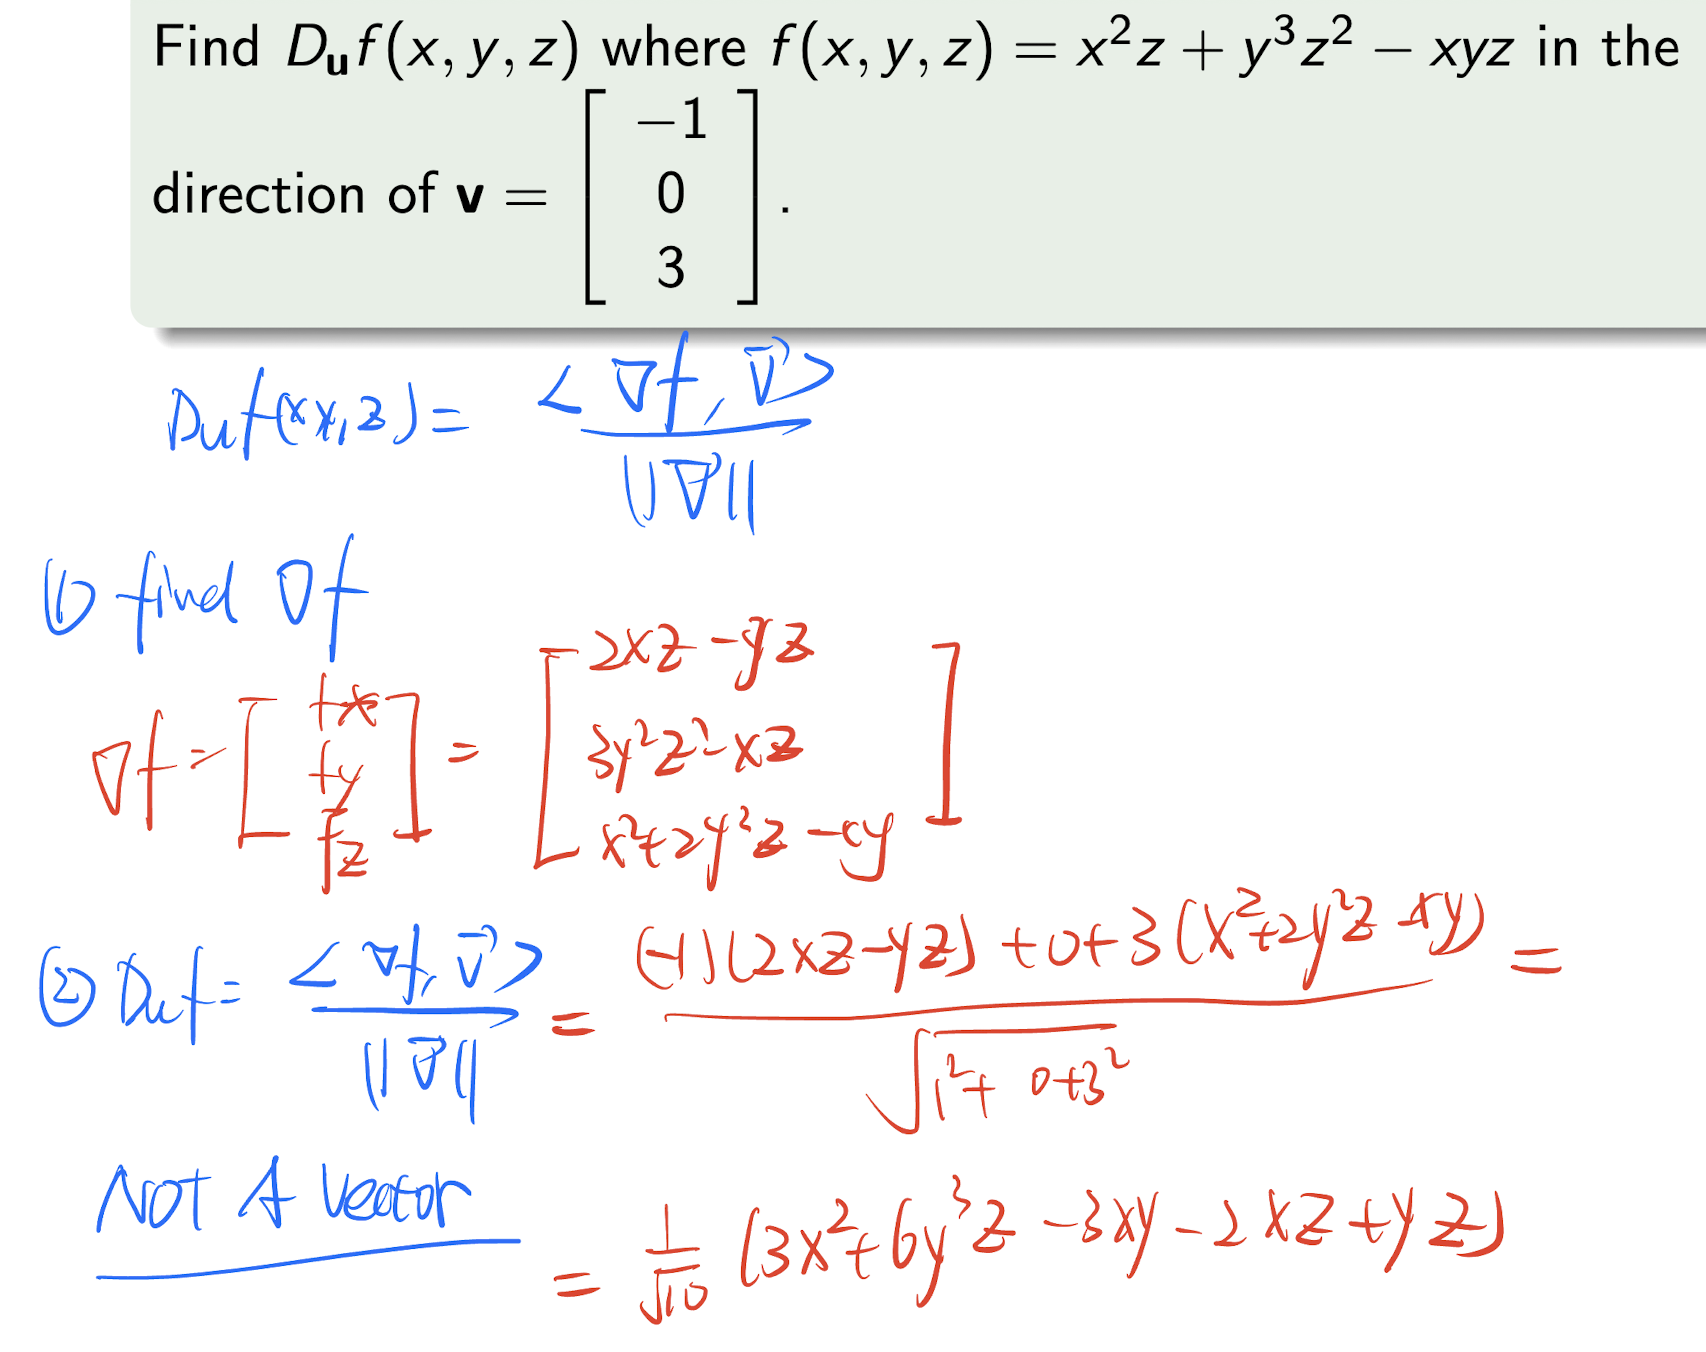 Find D_u f(x, y, z) where f(x, y, z) = x²z + y³z² − xyz in the
direction of v = [ −1 0 3 ] .
Duf(x,y,z) = <∇f, v⃗> / ||v⃗||
① find ∇f
∇f = [ fx fy fz ] = [ 2xz − yz 3y²z² − xz x²+2y³z − xy ]
② Duf = <∇f, v⃗> / ||v⃗|| = (-1)(2xz−yz) + 0 + 3(x²+2y³z − xy) / √(1²+ 0+3²) =
NOT A Vector
= 1/√10 (3x²+6y³z − 3xy − 2xz + yz)